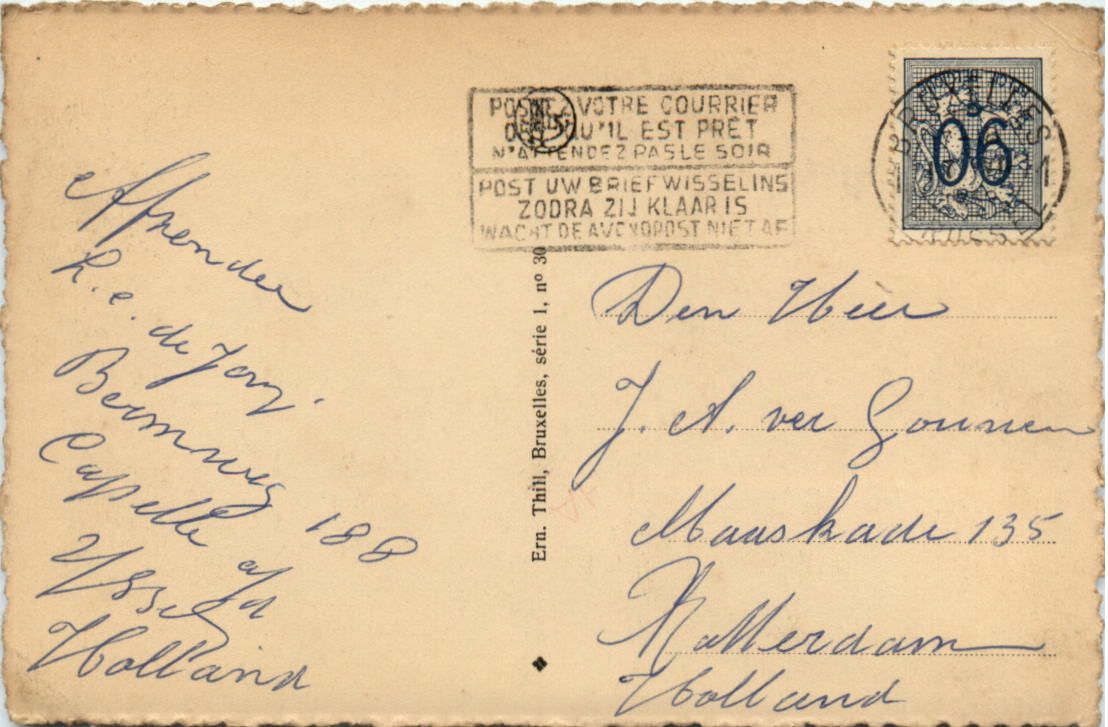 Afzender
h. c. de Jong.
Bermweg 188
Capelle a/d
Yssel
Holland
POSTEZ VOTRE COURRIER
QU'IL EST PRÊT
N'ATTENDEZ PAS LE SOIR
POST UW BRIEFWISSELING
ZODRA ZIJ KLAAR IS
WACHT DE AVONDPOST NIET AF
BRUXELLES
06
Ern. Thill, Bruxelles, série 1, nº 30
Den Heer
J. A. ver
Maaskade 135
Rotterdam
Holland